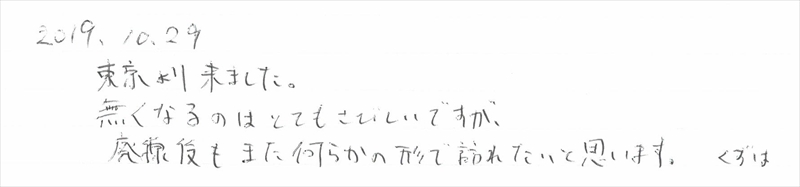 2019.10.29
東京より来ました。
無くなるのはとてもさびしいですが、
廃線後もまた何らかの形で訪れたいと思います。 くずは